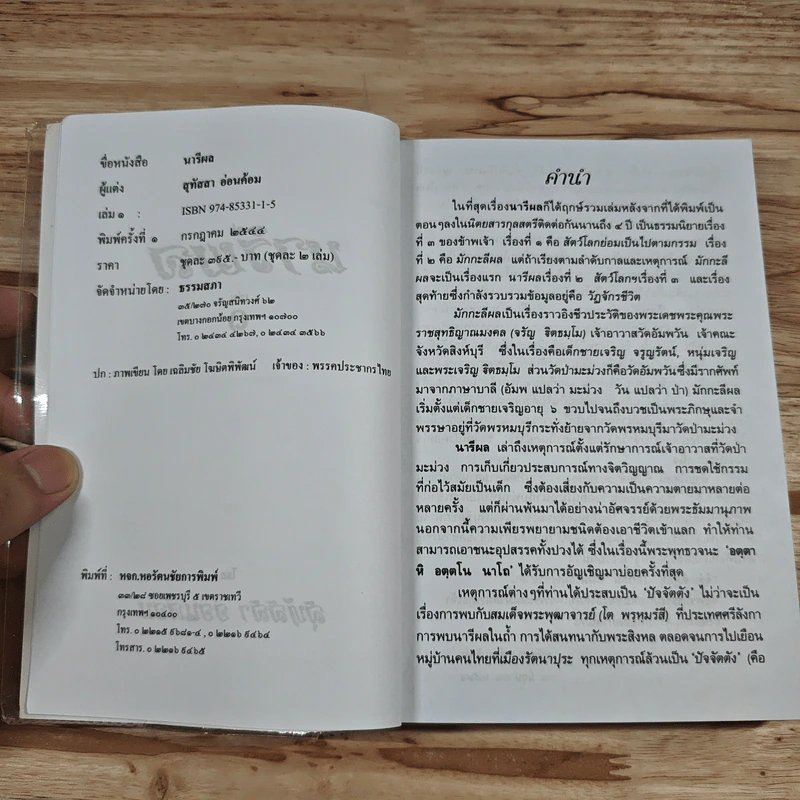 ชื่อหนังสือ นารีผล
ผู้แต่ง สุทัสสา อ่อนค้อม
เล่ม ๑ : ISBN 974-85331-1-5
พิมพ์ครั้งที่ ๑ กรกฎาคม ๒๕๔๔
ราคา ชุดละ ๓๙๕.- บาท (ชุดละ ๒ เล่ม)
จัดจำหน่ายโดย : ธรรมสภา
๓๕/๒๗๐ จรัญสนิทวงศ์ ๖๒
เขตบางกอกน้อย กรุงเทพฯ ๑๐๗๐๐
โทร. ๐ ๒๔๓๔ ๔๒๖๗, ๐ ๒๔๓๔ ๓๕๖๖
ปก : ภาพเขียน โดย เฉลิมชัย โฆษิตพิพัฒน์ เจ้าของ : พรรคประชากรไทย
พิมพ์ที่ : หจก.หอรัตนชัยการพิมพ์
๓๓/๒๘ ซอยเพชรบุรี ๕ เขตราชเทวี
กรุงเทพฯ ๑๐๔๐๐
โทร. ๐ ๒๒๑๕ ๙๖๘๑-๔ , ๐ ๒๒๑๖ ๙๔๖๔
โทรสาร. ๐ ๒๒๑๖ ๙๔๖๕
คำนำ
ในที่สุดเรื่องนารีผลก็ได้ฤกษ์รวมเล่มหลังจากที่ได้พิมพ์เป็น
ตอนๆลงในนิตยสารกุลสตรีติดต่อกันนานถึง ๔ ปี เป็นธรรมนิยายเรื่อง
ที่ ๓ ของข้าพเจ้า เรื่องที่ ๑ คือ สัตว์โลกย่อมเป็นไปตามกรรม เรื่อง
ที่ ๒ คือ มักกะลีผล แต่ถ้าเรียงตามลำดับกาลและเหตุการณ์ มักกะลี
ผลจะเป็นเรื่องแรก นารีผลเรื่องที่ ๒ สัตว์โลกฯเรื่องที่ ๓ และเรื่อง
สุดท้ายซึ่งกำลังรวบรวมข้อมูลอยู่คือ วัฏจักรชีวิต
มักกะลีผลเป็นเรื่องราวอิงชีวประวัติของพระเดชพระคุณพระ
ราชสุทธิญาณมงคล (จรัญ ฐิตธมฺโม) เจ้าอาวาสวัดอัมพวัน เจ้าคณะ
จังหวัดสิงห์บุรี ซึ่งในเรื่องคือเด็กชายเจริญ จรูญรัตน์, หนุ่มเจริญ
และพระเจริญ ฐิตธมฺโม ส่วนวัดป่ามะม่วงก็คือวัดอัมพวันซึ่งมีรากศัพท์
มาจากภาษาบาลี (อัมพ แปลว่า มะม่วง วัน แปลว่า ป่า) มักกะลีผล
เริ่มตั้งแต่เด็กชายเจริญอายุ ๖ ขวบไปจนถึงบวชเป็นพระภิกษุและจำ
พรรษาอยู่ที่วัดพรหมบุรีกระทั่งย้ายจากวัดพรหมบุรีมาวัดป่ามะม่วง
นารีผล เล่าถึงเหตุการณ์ตั้งแต่รักษาการณ์เจ้าอาวาสที่วัดป่า
มะม่วง การเก็บเกี่ยวประสบการณ์ทางจิตวิญญาณ การชดใช้กรรม
ที่ก่อไว้สมัยเป็นเด็ก ซึ่งต้องเสี่ยงกับความเป็นความตายมาหลายต่อ
หลายครั้ง แต่ก็ผ่านพ้นมาได้อย่างน่าอัศจรรย์ด้วยพระธัมมานุภาพ
นอกจากนี้ความเพียรพยายามชนิดต้องเอาชีวิตเข้าแลก ทำให้ท่าน
สามารถเอาชนะอุปสรรคทั้งปวงได้ ซึ่งในเรื่องนี้พระพุทธวจนะ 'อตฺตา
หิ อตฺตโน นาโถ' ได้รับการอัญเชิญมาบ่อยครั้งที่สุด
เหตุการณ์ต่างๆที่ท่านได้ประสบเป็น 'ปัจจัตตัง' ไม่ว่าจะเป็น
เรื่องการพบกับสมเด็จพระพุฒาจารย์ (โต พฺรหฺมรํสี) ที่ประเทศศรีลังกา
การพบนารีผลในถ้ำ การได้สนทนากับพระสิงหล ตลอดจนการไปเยือน
หมู่บ้านคนไทยที่เมืองรัตนาปุระ ทุกเหตุการณ์ล้วนเป็น 'ปัจจัตตัง' (คือ